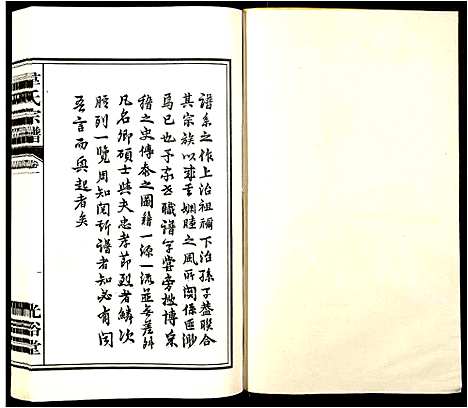 譜系之作上治祖禰下治孫子蓋聯合
其宗族以崇婣睦之風所關係匪渺
焉已也予忝世職譜学嘗旁搜博采
稽之史傳泰之圖籍一源一流並無差舛
凡名卿碩士與夫忠孝節烈者鱗次
臚列一覽周知閱斯譜者知必有聞
吾言而興起者矣
氏宗譜
光裕堂